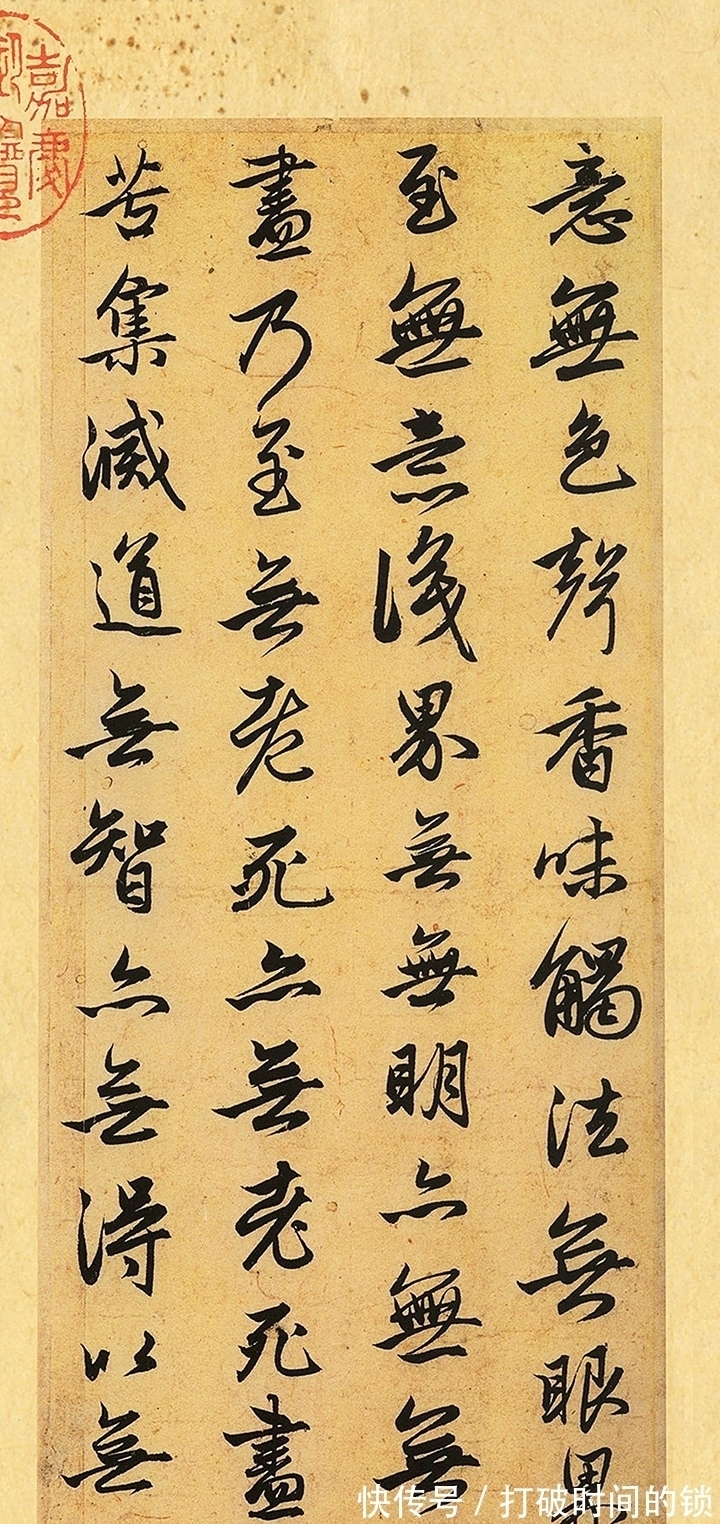 意無色聲香味觸法無眼界
至無意識界無無明亦無無
盡乃至無老死亦無老死盡
苦集滅道無智亦無得以無
嘉慶
快传号 / 打破时间的锁